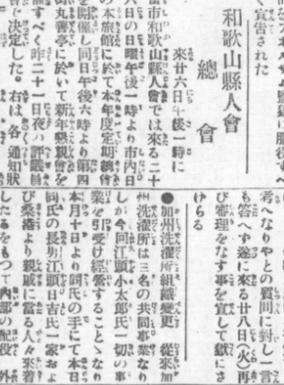 宣告された
和歌山縣人會
總會
來廿六日午後一時に
市和歌山縣人會では來る二十
六日の日曜午後一時より市內日
本旅館に於て本年度定期總會
を開催し同日午後六時より
街丸善亭に於いて新年懇親會を
すべく昨二十一日夜の評議員
會で決定した。右は、各通知狀
考へなりやとの質問に對し一言
も答へず遂に來る廿八日(火)再
び審理をなす事を宣して獄にさ
げらる
●加州洗濯所組織變更 從來加
州洗濯所は三名の共同事業なり
しが今回江頭小太郎氏一切の事
業を引受け經營することゝなり
本月十日より同氏の手にて本日
同氏の長男江頭日吉氏一家およ
び桑港より親戚に當る人々來着
したるをもつて內部の配役、外